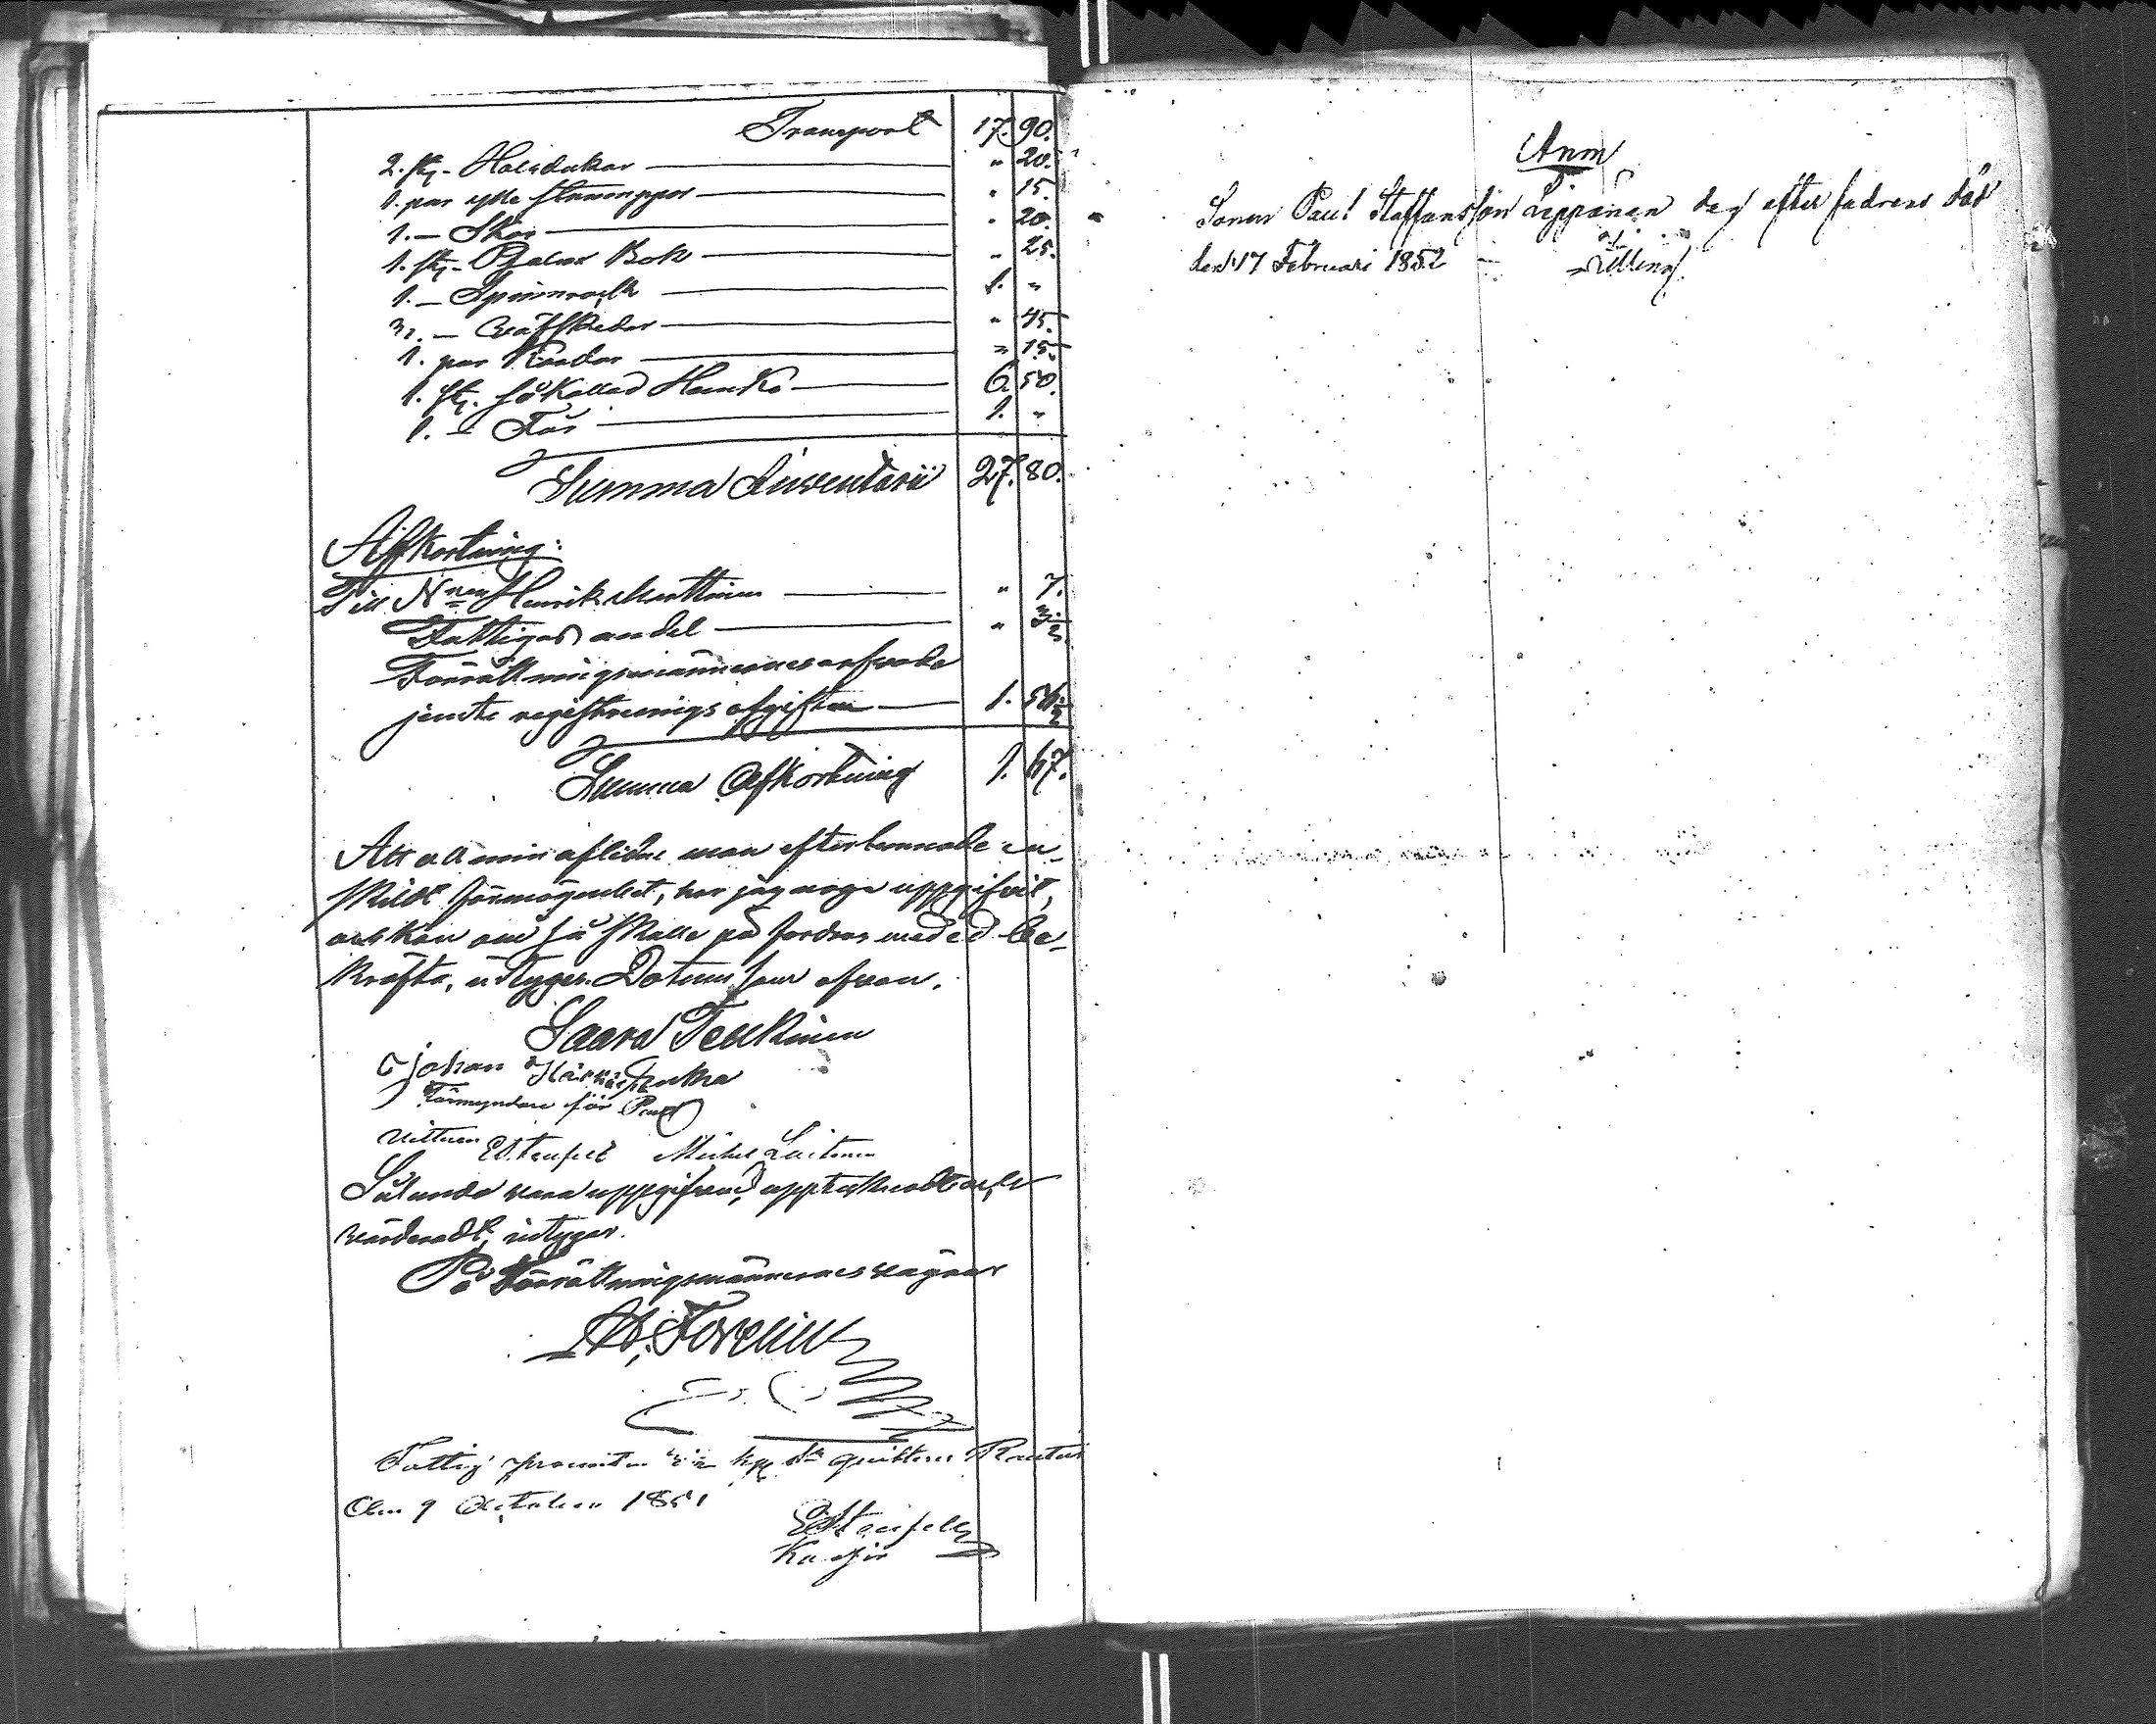 Transport 17. 90.
2. st. Halsdukar " 20.
1. par ylle strumppor " 15.
1. — Skor " 20.
1. st. Psalm Bok " 25.
1. — Spinnrock 1. "
3. — Väfskedar " 45.
1. par Kardor " 15.
1. st. så kallad Ko 6. 50.
1. — Får 1. "
Summa Inventarii 27. 80.
Afkortning:
Till Henrik Marttinen " 7.
Fattiges andel " 3½
Förrättningsmännernes arfvode
jemte registreringsafgiften 1. 56½
Summa Afkortning 1. 67.
Att all min aflidne man efterlemnade en-
skildt förmögenhet, har jag noga uppgifvit,
och kan om så skulle på fordras med ed be-
kräfta, intygar. Datum som ofvan.
Saara Teukinen
Johan
Förmyndare för Paul
Vittnen Michel Laitinen
Sålunda vara uppgifvet, uppteknadt och
värderadt, intygar.
På Förrättningsmännernes vägnar
Ad. Forelius
Fattig procenten 3½ kop. Sr qvitteras Rautus
den 9 October 1851
Anm
Sonen Paul Staffansson Lippanen dog efter fadrens död
den 17 Februari 1852 —